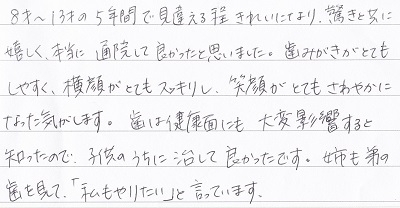 8才～13才の5年間で見違える程きれいになり、驚きと共に
嬉しく、本当に通院して良かったと思いました。歯みがきがとても
しやすく、横顔がとてもスッキリし、笑顔がとてもさわやかに
なった気がします。歯は健康面にも大変影響すると
知ったので、子供のうちに治して良かったです。姉も弟の
歯を見て、「私もやりたい」と言っています。